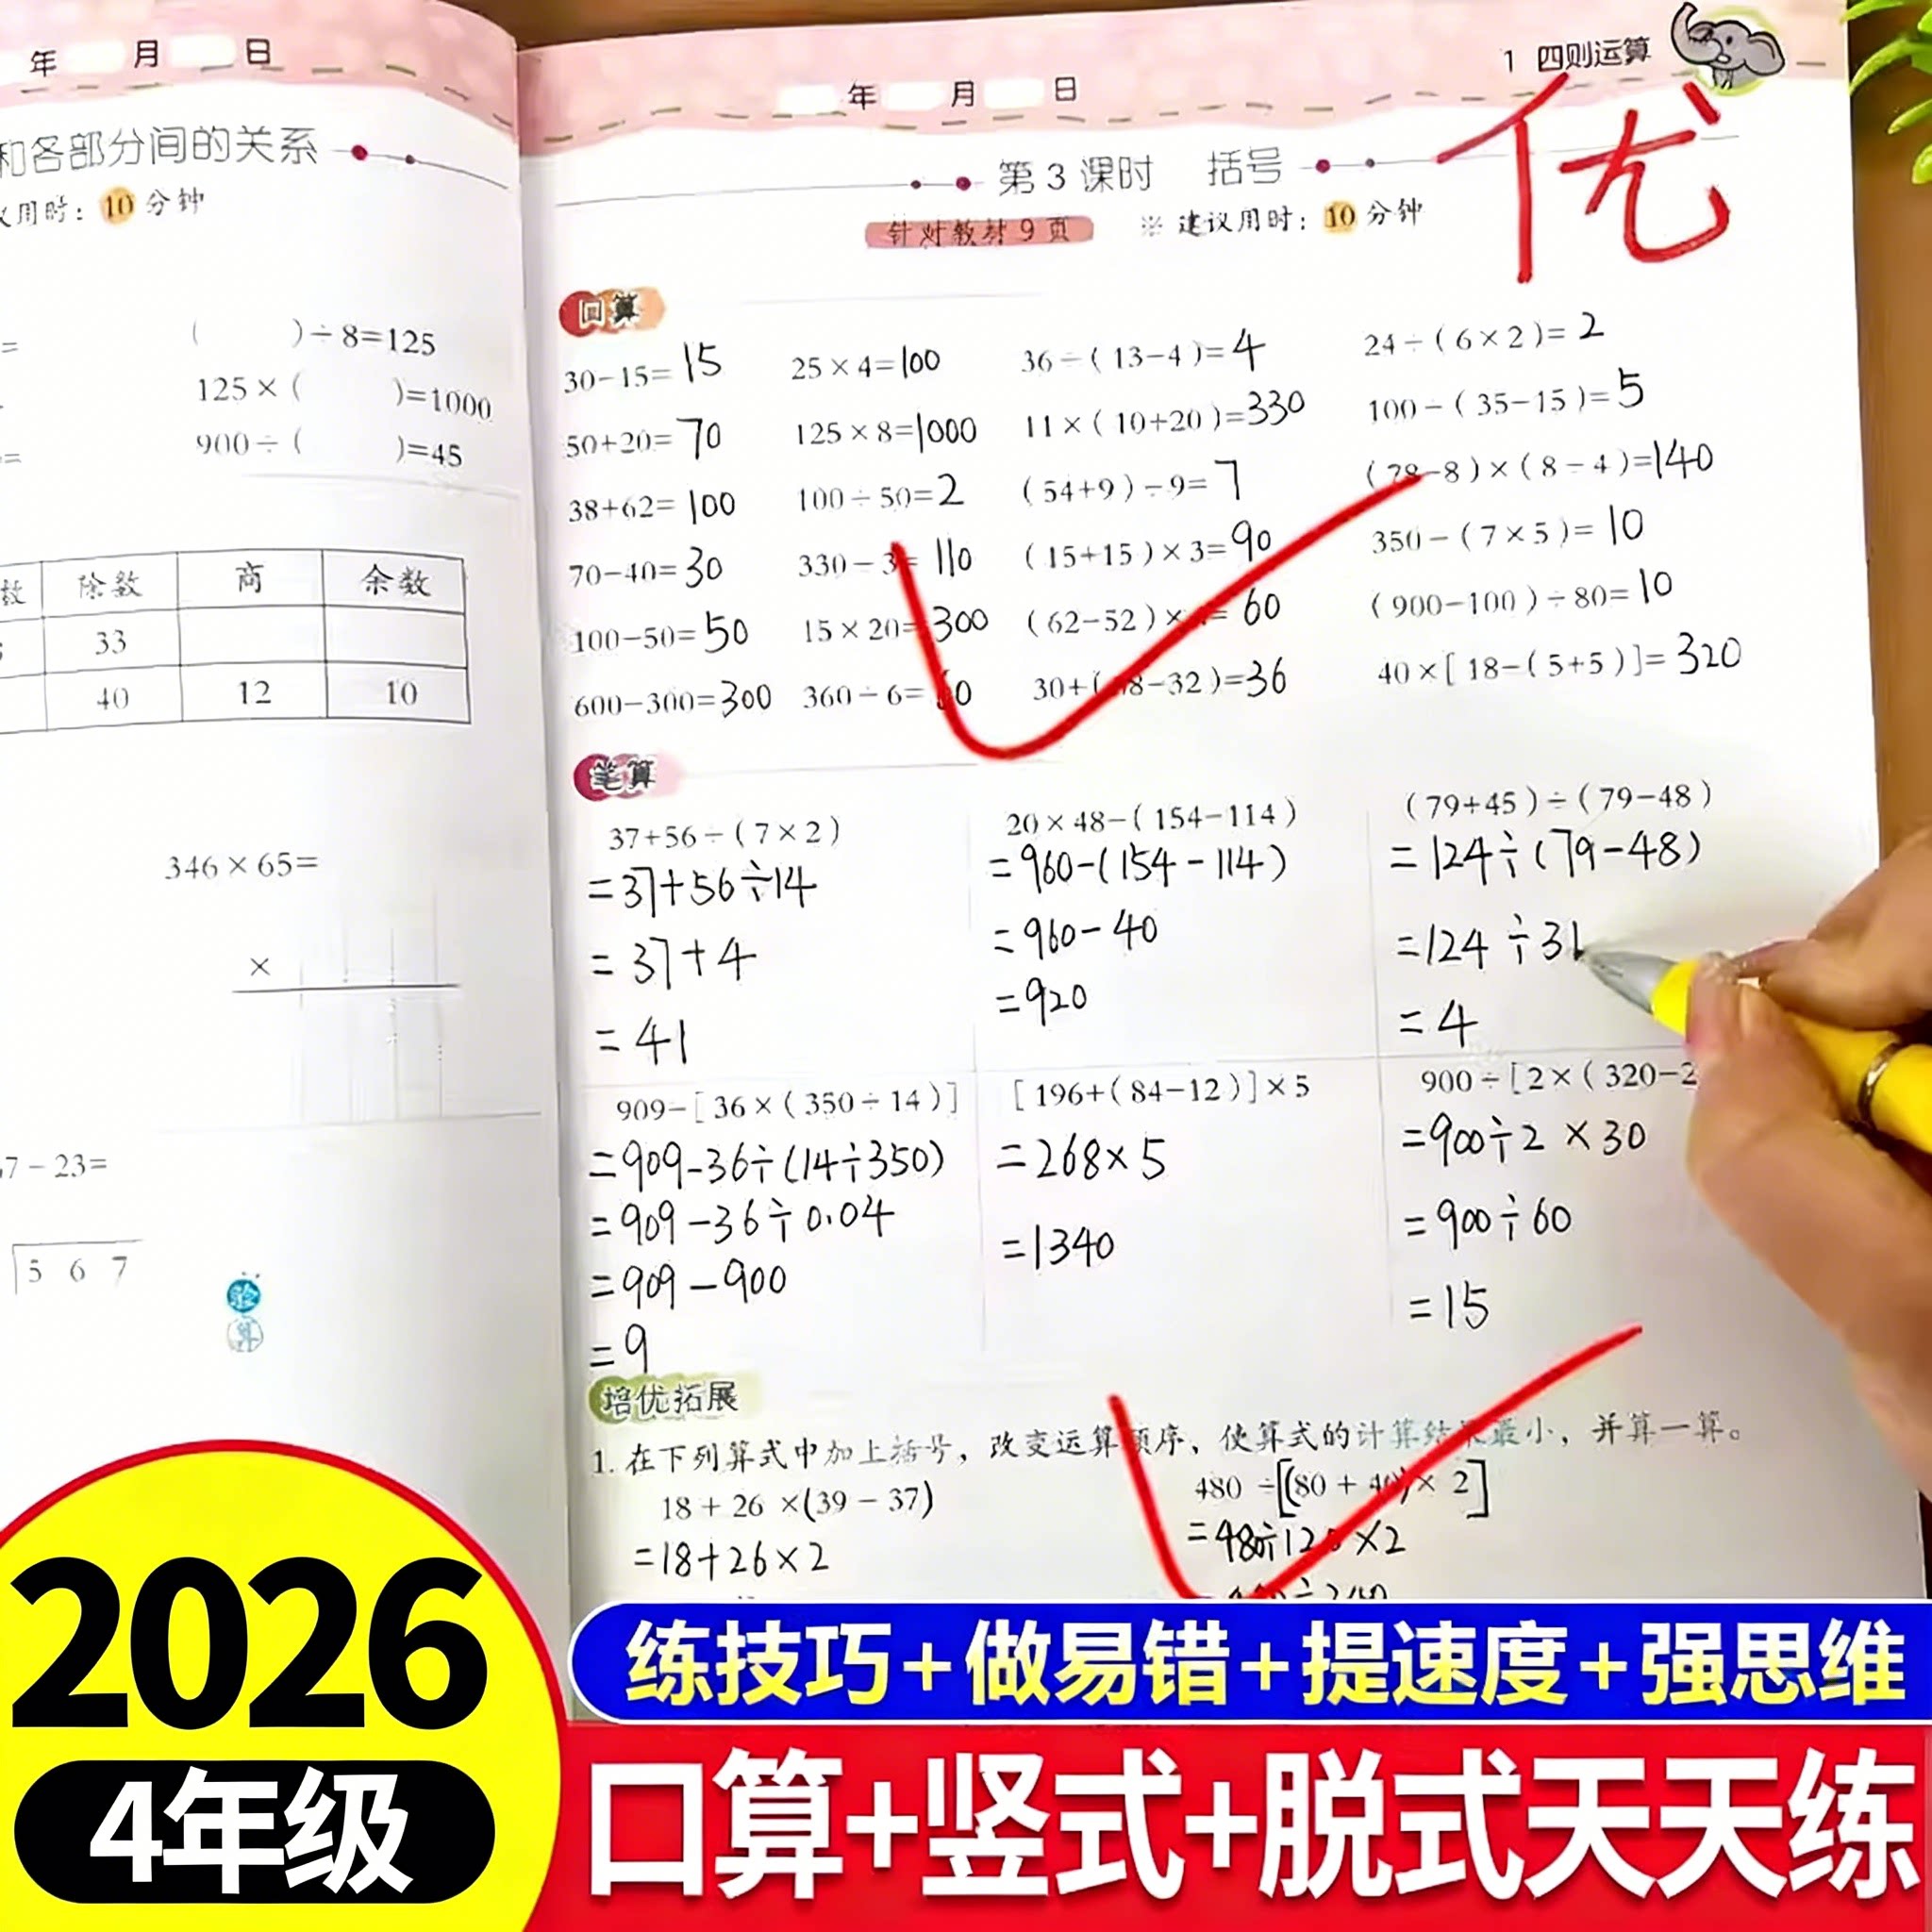 年 月 日
和各部分间的关系
议用时：10分钟
=
( )÷8=125
125×( )=1000
900÷( )=45
=
数 除数 商 余数
33
40 12 10
346×65=
×
7-23=
567
验
算
年 月 日
1 四则运算
优
第3课时 括号
针对教材9页 ※建议用时：10分钟
口算
30-15=15 25×4=100 36÷(13-4)=4 24÷(6×2)=2
50+20=70 125×8=1000 11×(10+20)=330 100÷(35-15)=5
38+62=100 100÷50=2 (54+9)÷9=7 -8)×(8-4)=140
70-40=30 330÷3=110 (15+15)×3=90 350÷(7×5)=10
100-50=50 15×20=300 (62-52)× = 60 (900-100)÷80=10
600-300=300 360÷6= 0 30+( 8-32)=36 40×[18-(5+5)]=320
笔算
37+56÷(7×2)
=37+56÷14
=37+4
=41
20×48-(154-114)
=960-(154-114)
=960-40
=920
(79+45)÷(79-48)
=124÷(79-48)
=124÷31
=4
909-[36×(350÷14)]
=909-36÷(14÷350)
=909-36÷0.04
=909-900
=9
[196+(84-12)]×5
=268×5
=1340
900÷[2×(320-2
=900÷2×30
=900÷60
=15
培优拓展
1. 在下列算式中加上括号，改变运算顺序，使算式的计算结果最小，并算一算。
18+26×(39-37)
=18+26×2
480÷[(80+40)×2]
=480÷120×2
÷240
2026
4年级
练技巧+做易错+提速度+强思维
口算+竖式+脱式天天练